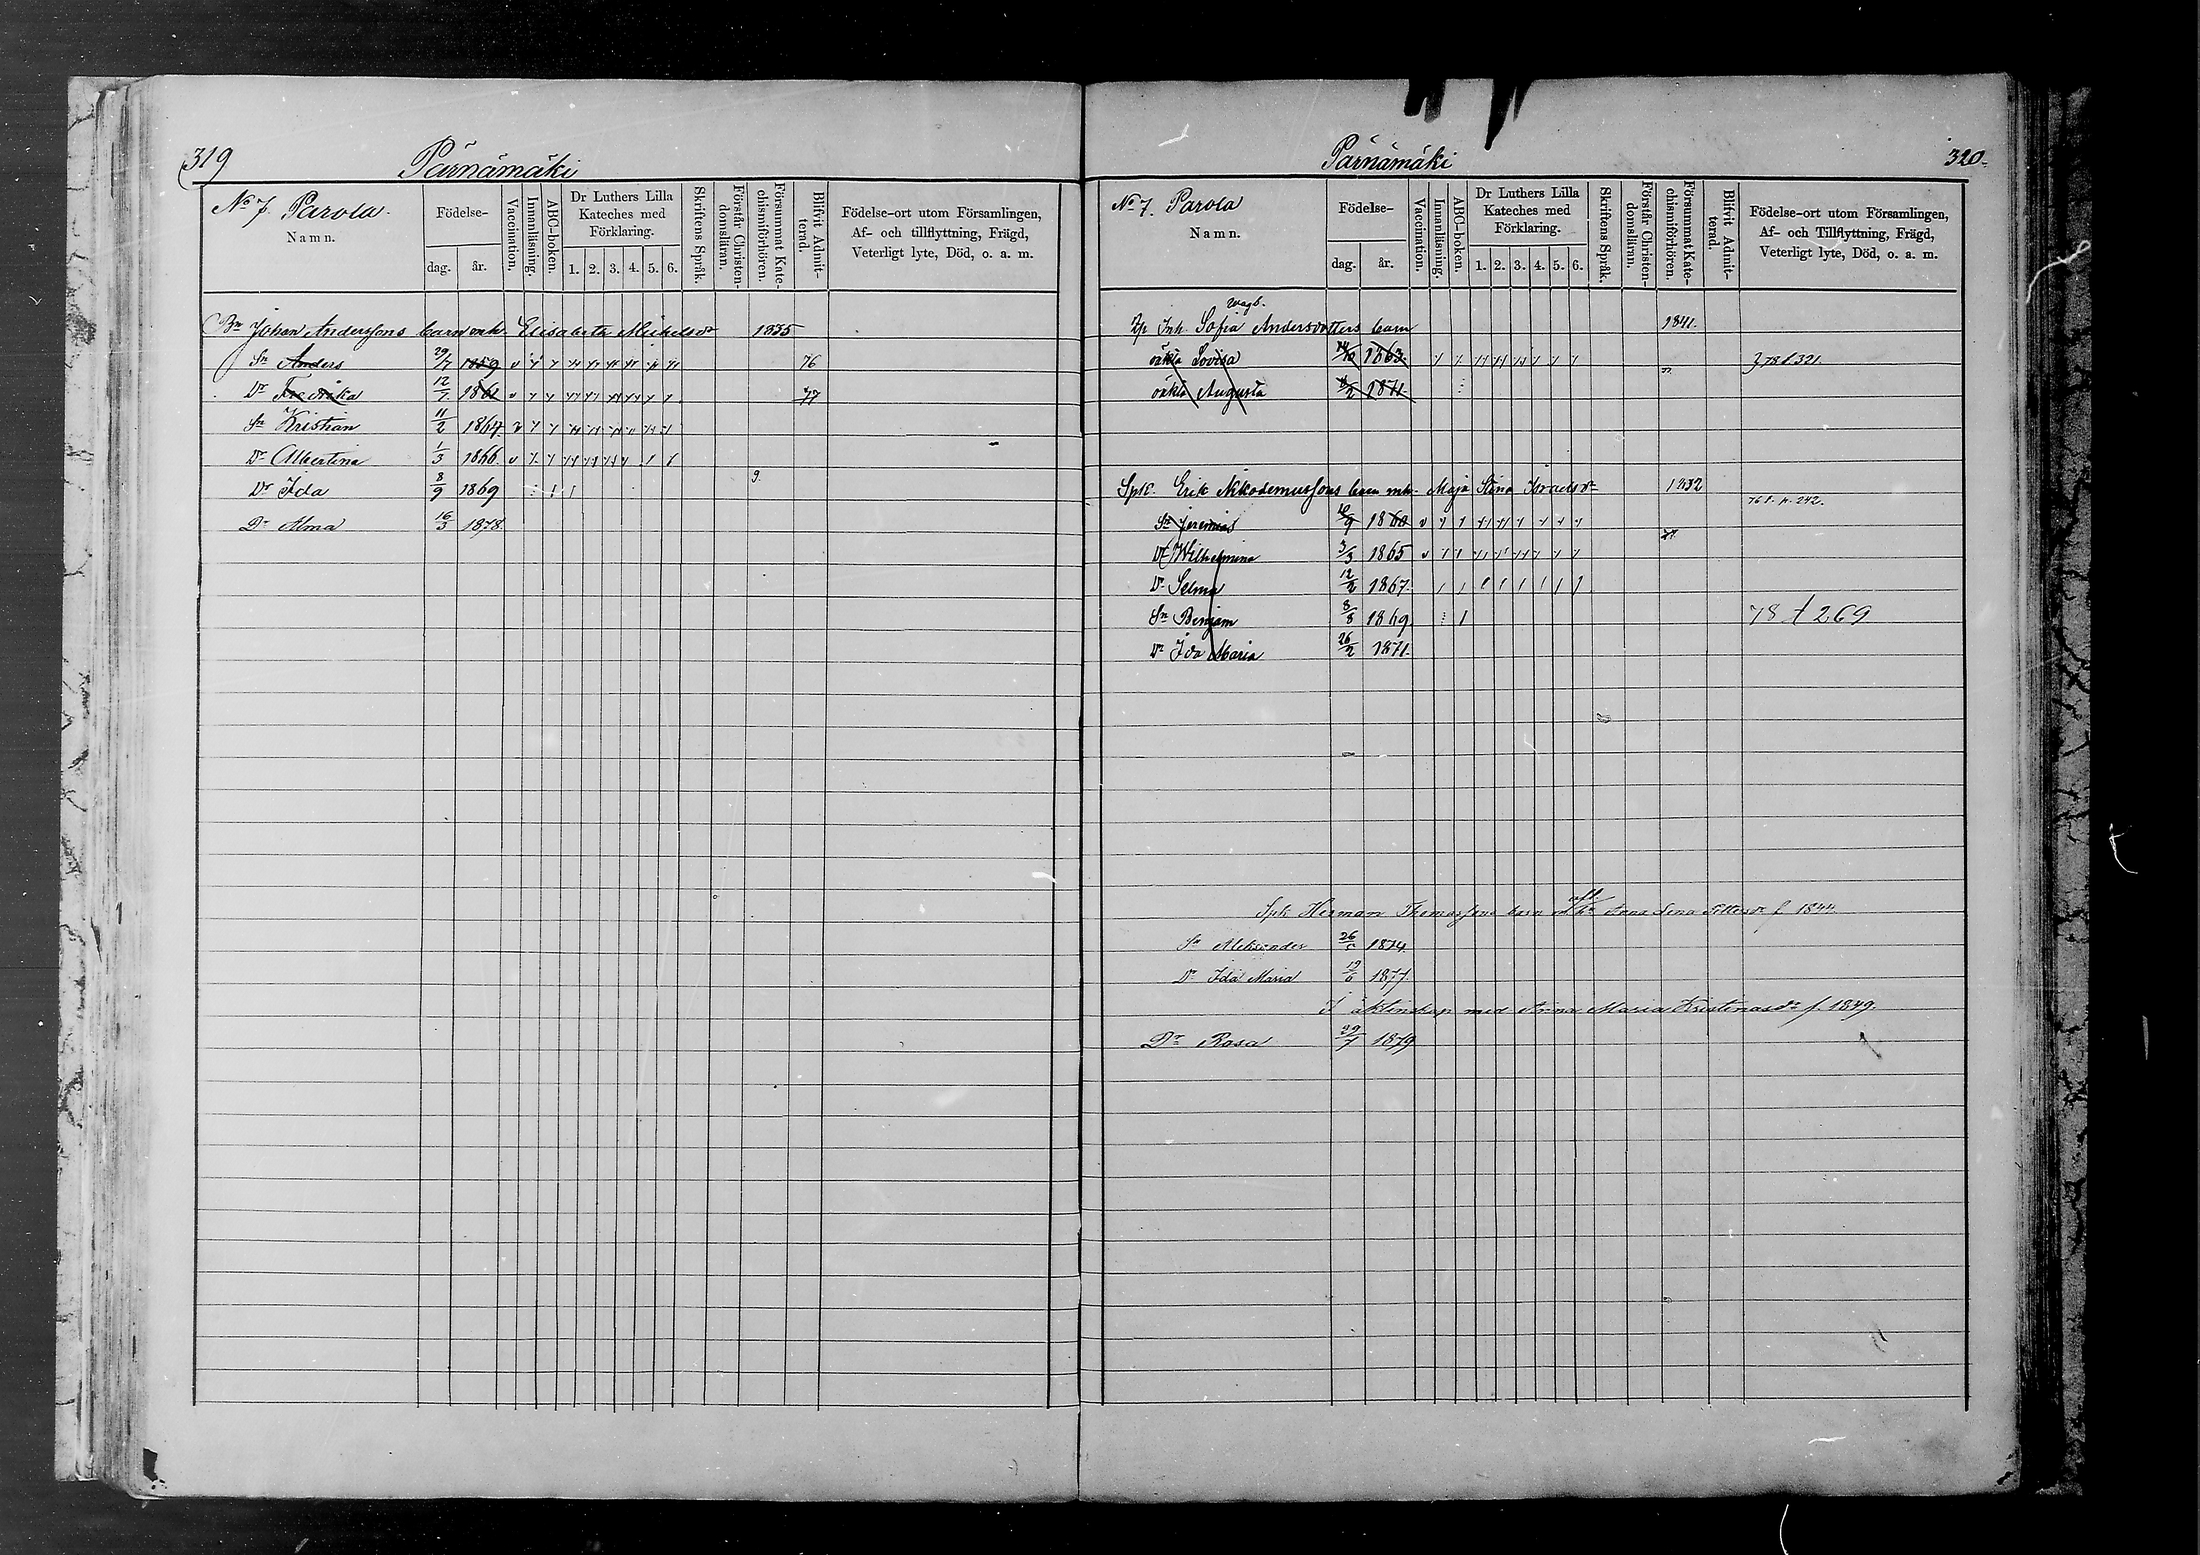 319
Pärnämäki
No 7. Parola.
Namn.
Födelse-
dag.
år.
Vaccination.
Innanläsning.
ABC-boken.
Dr Luthers Lilla
Kateches med
Förklaring.
1. 2. 3. 4. 5. 6.
Skriftens Språk.
Förstår Christen-
domsläran.
Försummat Kate-
chismiförhören.
Blifvit Admit-
terad.
Födelse-ort utom Församlingen,
Af- och tillflyttning, Frägd,
Veterligt lyte, Död, o. a. m.
Johan Anderssons barn mh Elisabeta Mickelsdr 1835
Sn Anders 29/7 1859 76
Dr Fredrika 12/7 1861 77
Sn Kristian 11/2 1864
Dr Albertina 1/3 1866
Dr Ida 8/9 1869 9.
Dr Alma 16/3 1878
320
Pärnämäki
No 7. Parola
Namn.
Födelse-
dag.
år.
Vaccination.
Innanläsning.
ABC-boken.
Dr Luthers Lilla
Kateches med
Förklaring.
1. 2. 3. 4. 5. 6.
Skriftens Språk.
Förstår Christen-
domsläran.
Försummat Kate-
chismiförhören.
Blifvit Admit-
terad.
Födelse-ort utom Församlingen,
Af- och Tillflyttning, Frägd,
Veterligt lyte, Död, o. a. m.
Inh. Sofia Andersdotters barn 1841.
oäkta Lovisa 1863 321.
oäkta Augusta 1871
Spk. Erik Nikodemussons barn mh. Maja Stina Israelsdr 1832
76 f. p. 242.
Sn Jeremias 1860
Dr Wilhelmina 3/3 1865
Dr Selma 12/2 1867.
Sn Benjam 8/8 1869 78 f 269
Dr Ida Maria 26/2 1871.
Spk Herman Thomassons barn Anna Lena f 1844.
Sn Aleksander 1874
Dr Ida Maria 19/6 1877.
I äktenskap med Anna Maria Kristinasdr f. 1849.
Dr Rosa 29/7 1879